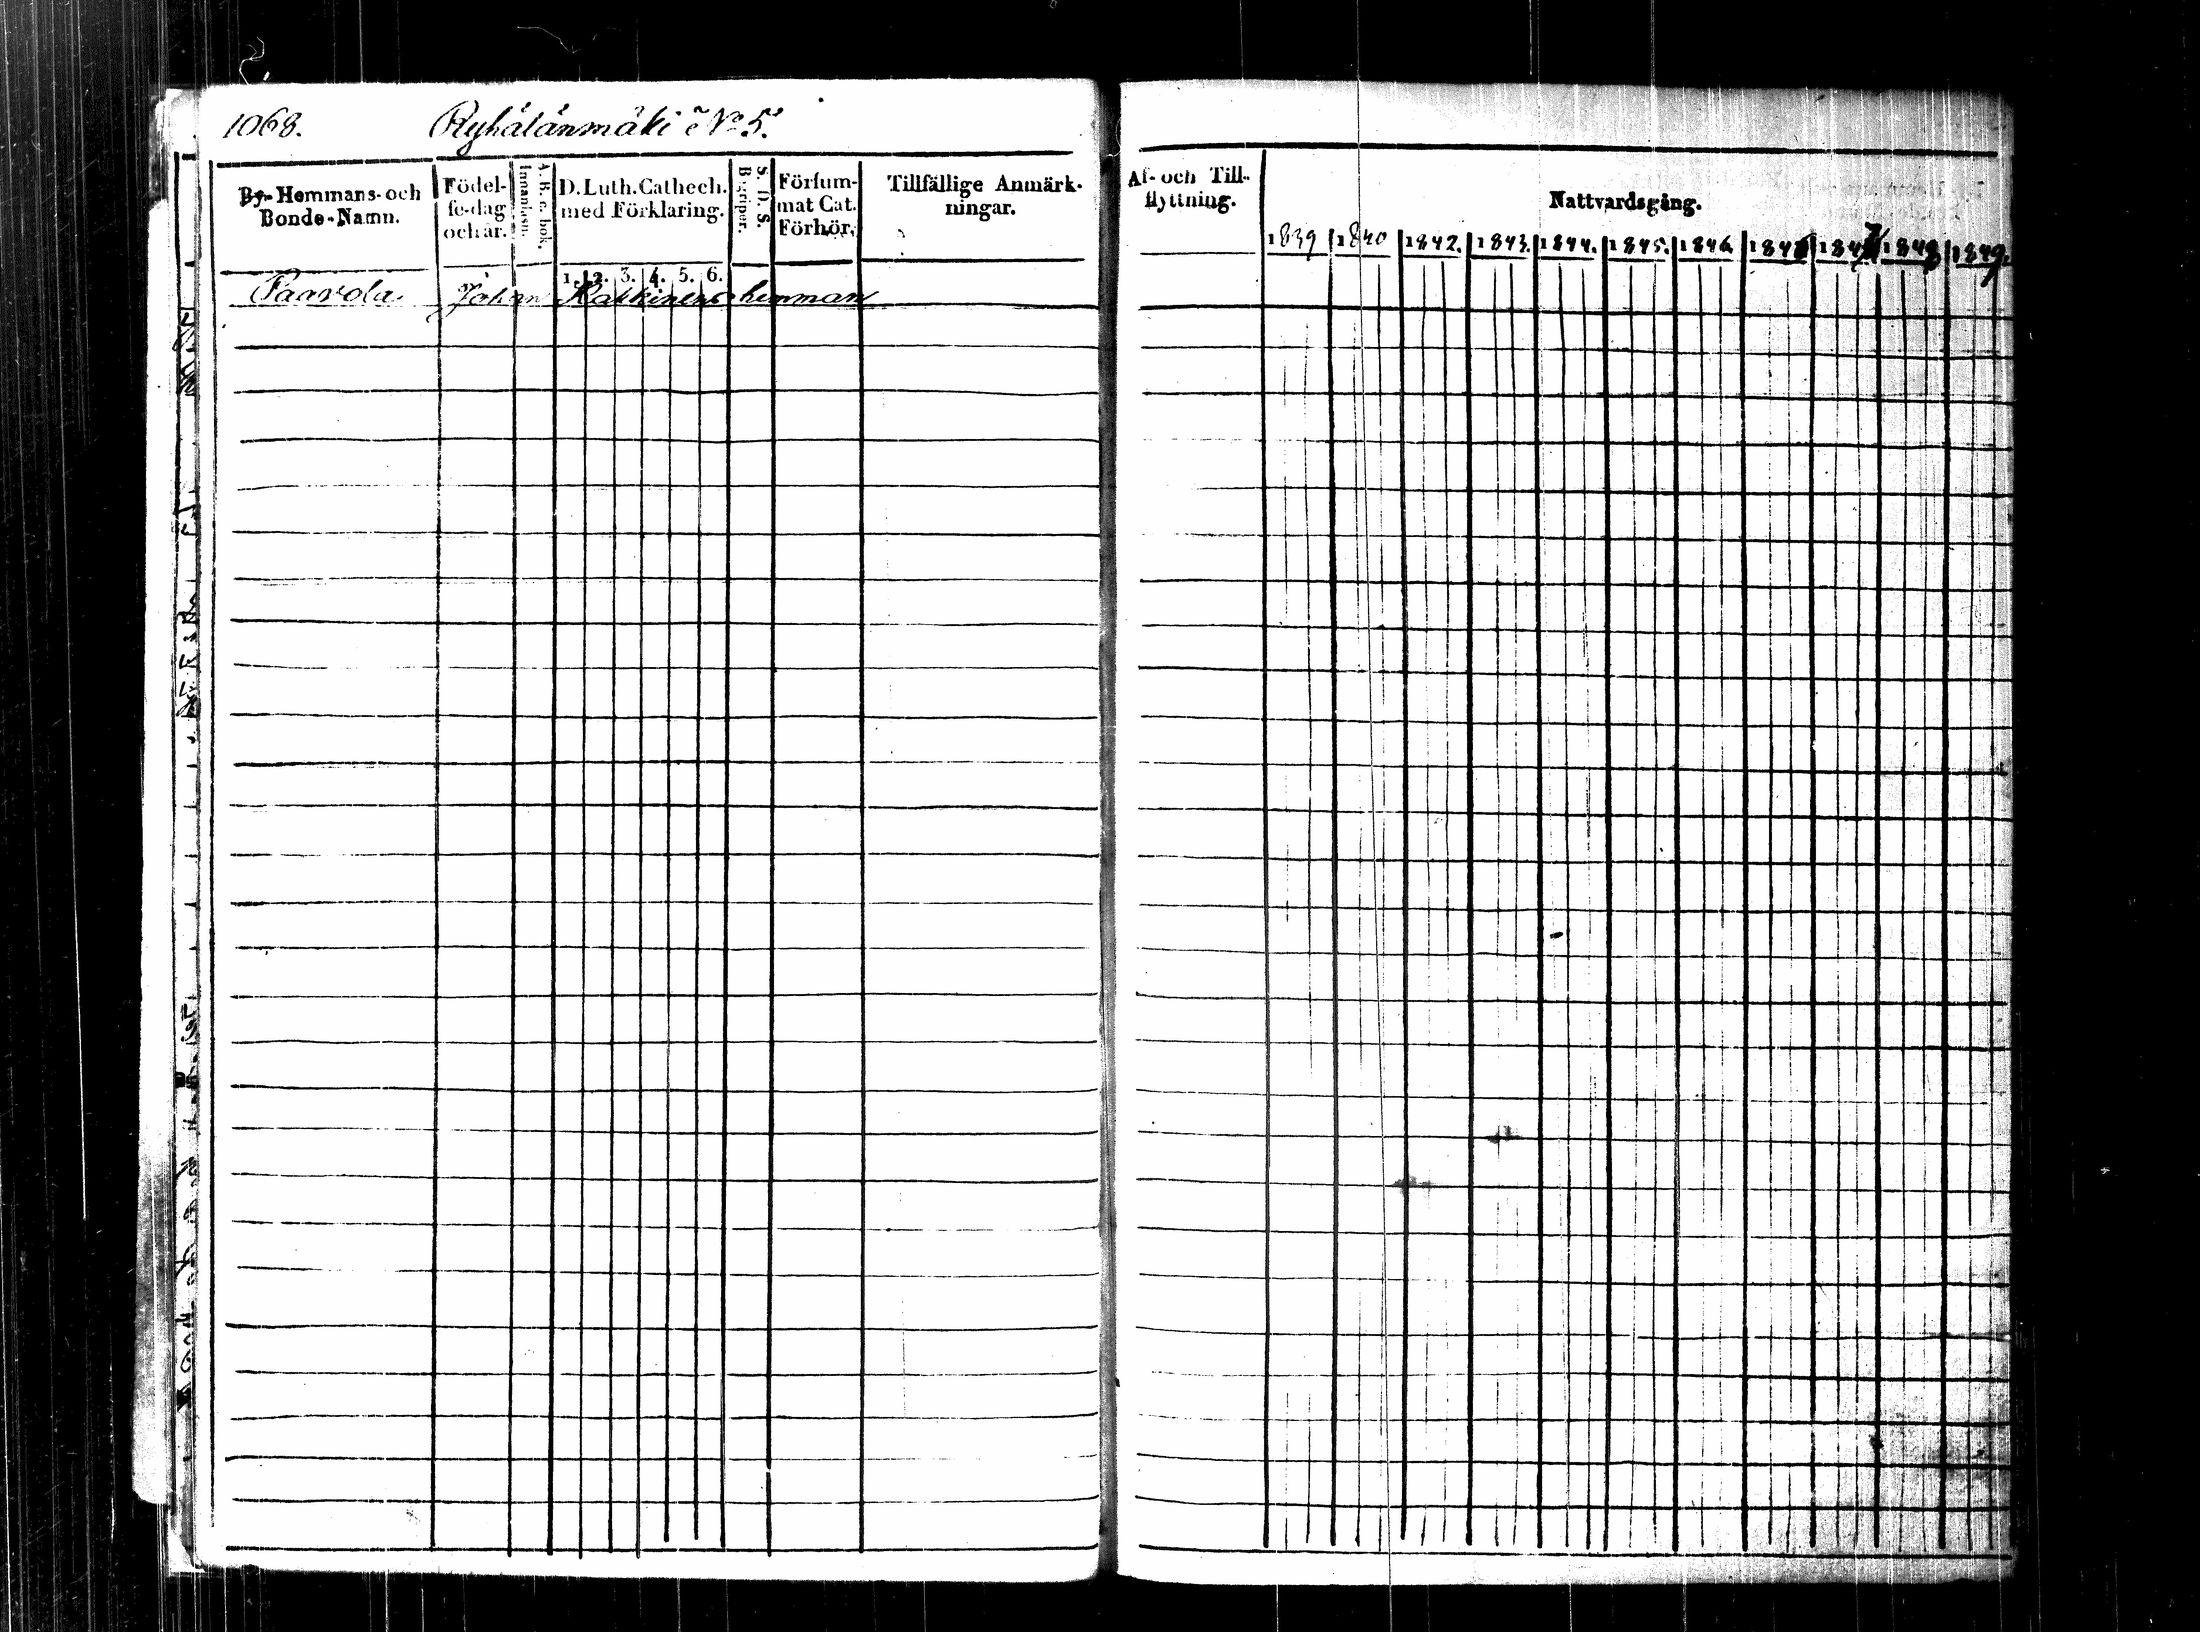 1068. Ryhälänmäki No 5.
By- Hemmans- och
Bonde-Namn.
Födel-
se-dag
och år.
A. B. c. bok.
Innanläsn.
D. Luth. Cathech.
med Förklaring.
1. 2. 3. 4. 5. 6.
S. D. S.
Begriper.
Försum-
mat Cat.
Förhör.
Tillfällige Anmärk-
ningar.
Paavola Johan Kakkinens hemman
Af- och Till-
flyttning.
Nattvardsgång.
1839 1840 1842. 1843. 1844. 1845. 1846. 1846 1847 1848 1849.